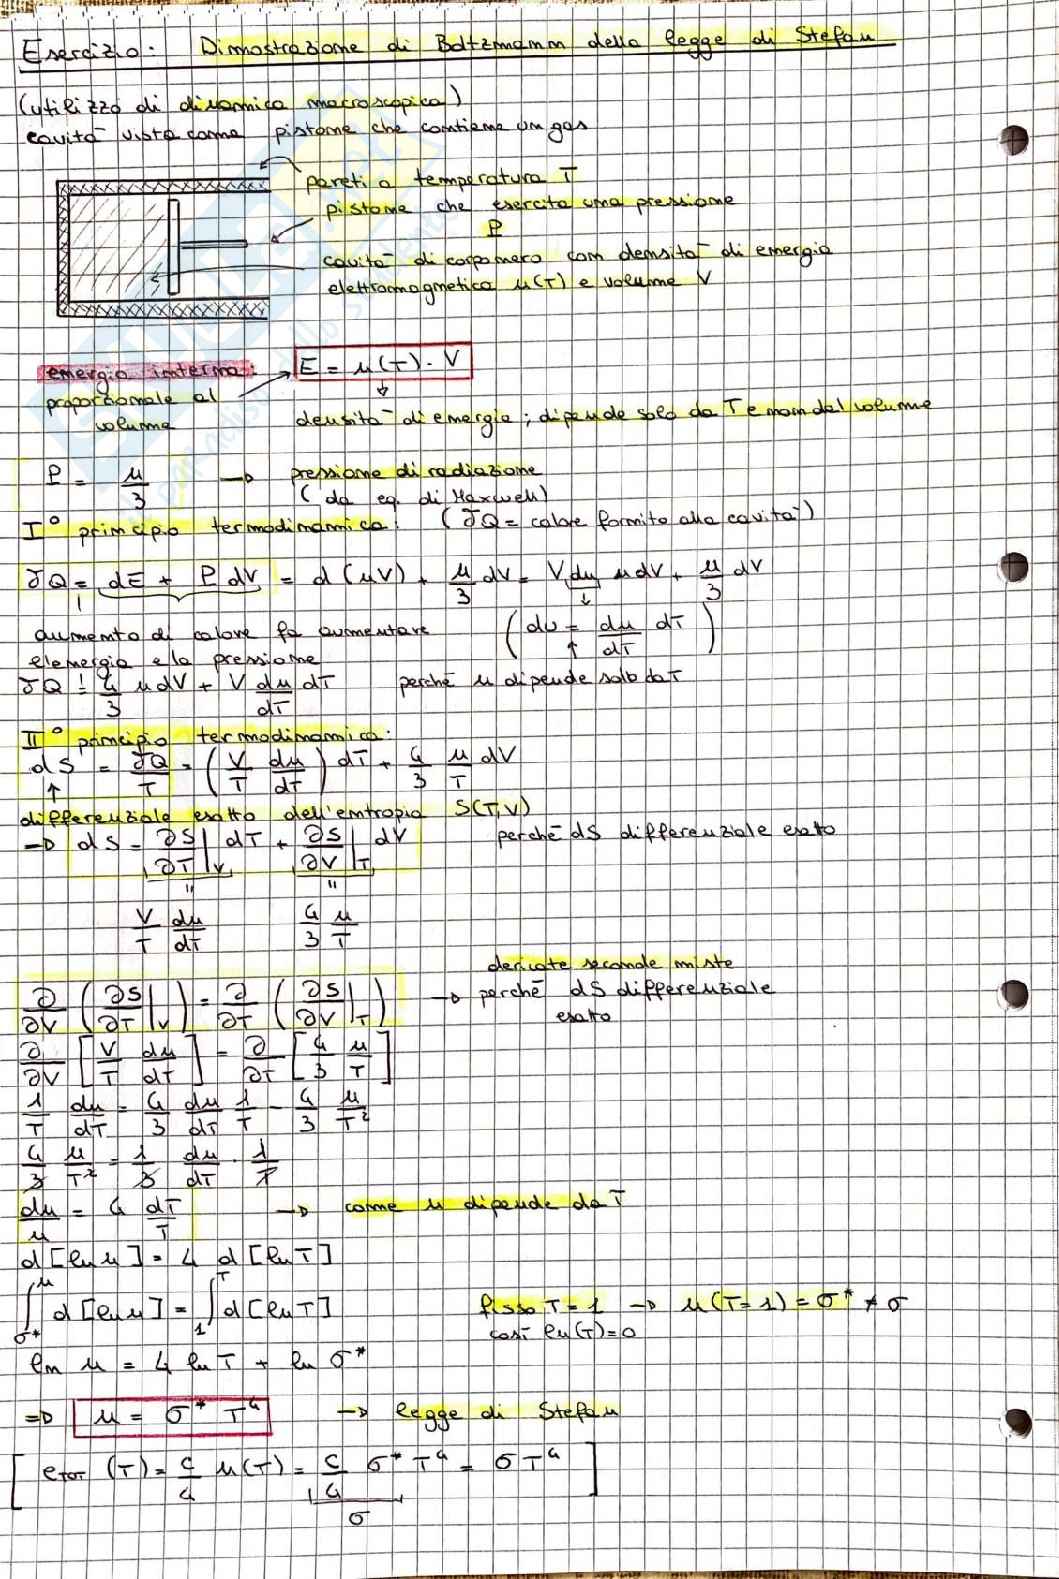 Esercizio: Dimostrazione di Boltzmann della legge di Stefan
(utilizzo di dinamica macroscopica)
cavità vista come pistone che contiene un gas
pareti a temperatura T
pistone che esercita una pressione
P
cavità di corponero con densità di energia
elettromagnetica u(T) e volume V
energia interna: E = u(T) · V
proporzionale al
volume
densità di energia; dipende solo da T e non dal volume
P = u/3 → pressione di radiazione
(da eq. di Maxwell)
I° principio termodinamica: (δQ = calore fornito alla cavità)
δQ = dE + P dV = d(uV) + u/3 dV = V du u dV + u/3 dV
aumento di calore fa aumentare (du = du/dT dT)
l'energia e la pressione
δQ = 4/3 u dV + V du/dT dT perché u dipende solo da T
II° principio termodinamica:
dS = δQ/T = (V/T du/dT) dT + 4/3 u/T dV
differenziale esatto dell'entropia S(T,V)
→ dS = ∂S/∂T|V dT + ∂S/∂V|T dV perché dS differenziale esatto
" "
V/T du/dT 4/3 u/T
derivate seconde miste
∂/∂V (∂S/∂T|V) = ∂/∂T (∂S/∂V|T) → perché dS differenziale
esatto
∂/∂V [V/T du/dT] = ∂/∂T [4/3 u/T]
1/T du/dT = 4/3 du/dT 1/T - 4/3 u/T²
4/3 u/T² = 1/3 du/dT · 1/T
du/u = 4 dT/T → come u dipende da T
d[ln u] = 4 d[ln T]
∫σ*^u d[ln u] = ∫1^T d[ln T] fisso T=1 → u(T=1) = σ* ≠ σ
così ln(T)=0
ln u = 4 ln T + ln σ*
⇒ u = σ* T⁴ → legge di Stefan
[eTOT (T) = c/4 u(T) = c/4 σ* T⁴ = σT⁴]
σ